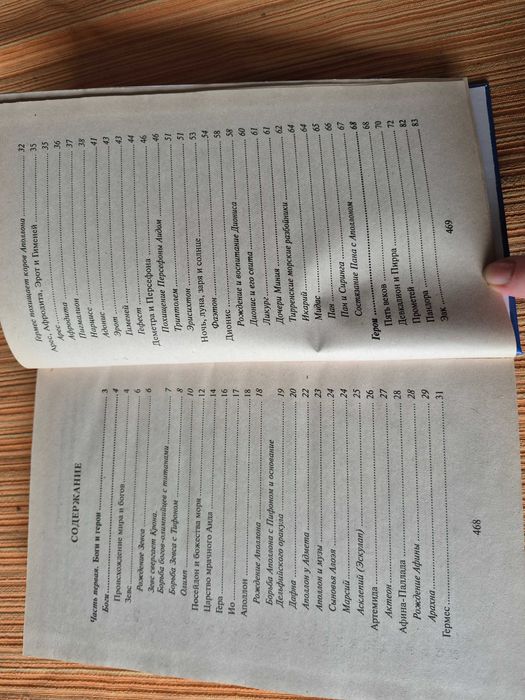 СОДЕРЖАНИЕ
Часть первая. Боги и герои 3
Боги 4
Происхождение мира и богов 4
Зевс 6
Рождение Зевса 6
Зевс свергает Крона.
Борьба богов-олимпийцев с титанами 7
Борьба Зевса с Тифоном 8
Олимп 10
Посейдон и божества моря 12
Царство мрачного Аида 14
Гера 16
Ио 17
Аполлон 18
Рождение Аполлона 18
Борьба Аполлона с Пифоном и основание
Дельфийского оракула 19
Дафна 20
Аполлон у Адмета 22
Аполлон и музы 23
Сыновья Алоэя 24
Марсий 24
Асклепий (Эскулап) 25
Артемида 26
Актеон 27
Афина-Паллада 28
Рождение Афины 28
Арахна 29
Гермес 31
468
Гермес похищает коров Аполлона 32
Арес, Афродита, Эрот и Гименей 35
Арес 35
Афродита 36
Пигмалион 37
Нарцисс 38
Адонис 41
Эрот 43
Гименей 43
Гефест 44
Деметра и Персефона 46
Похищение Персефоны Аидом 46
Триптолем 51
Эрисихтон 51
Ночь, луна, заря и солнце 53
Фаэтон 54
Дионис 58
Рождение и воспитание Диониса 58
Дионис и его свита 60
Ликург 61
Дочери Миния 61
Тирренские морские разбойники 62
Икарий 64
Мидас 64
Пан 65
Пан и Сиринга 66
Состязание Пана с Аполлоном 67
Герои 68
Пять веков 68
Девкалион и Пирра 70
Прометей 72
Пандора 82
Эак 83
469